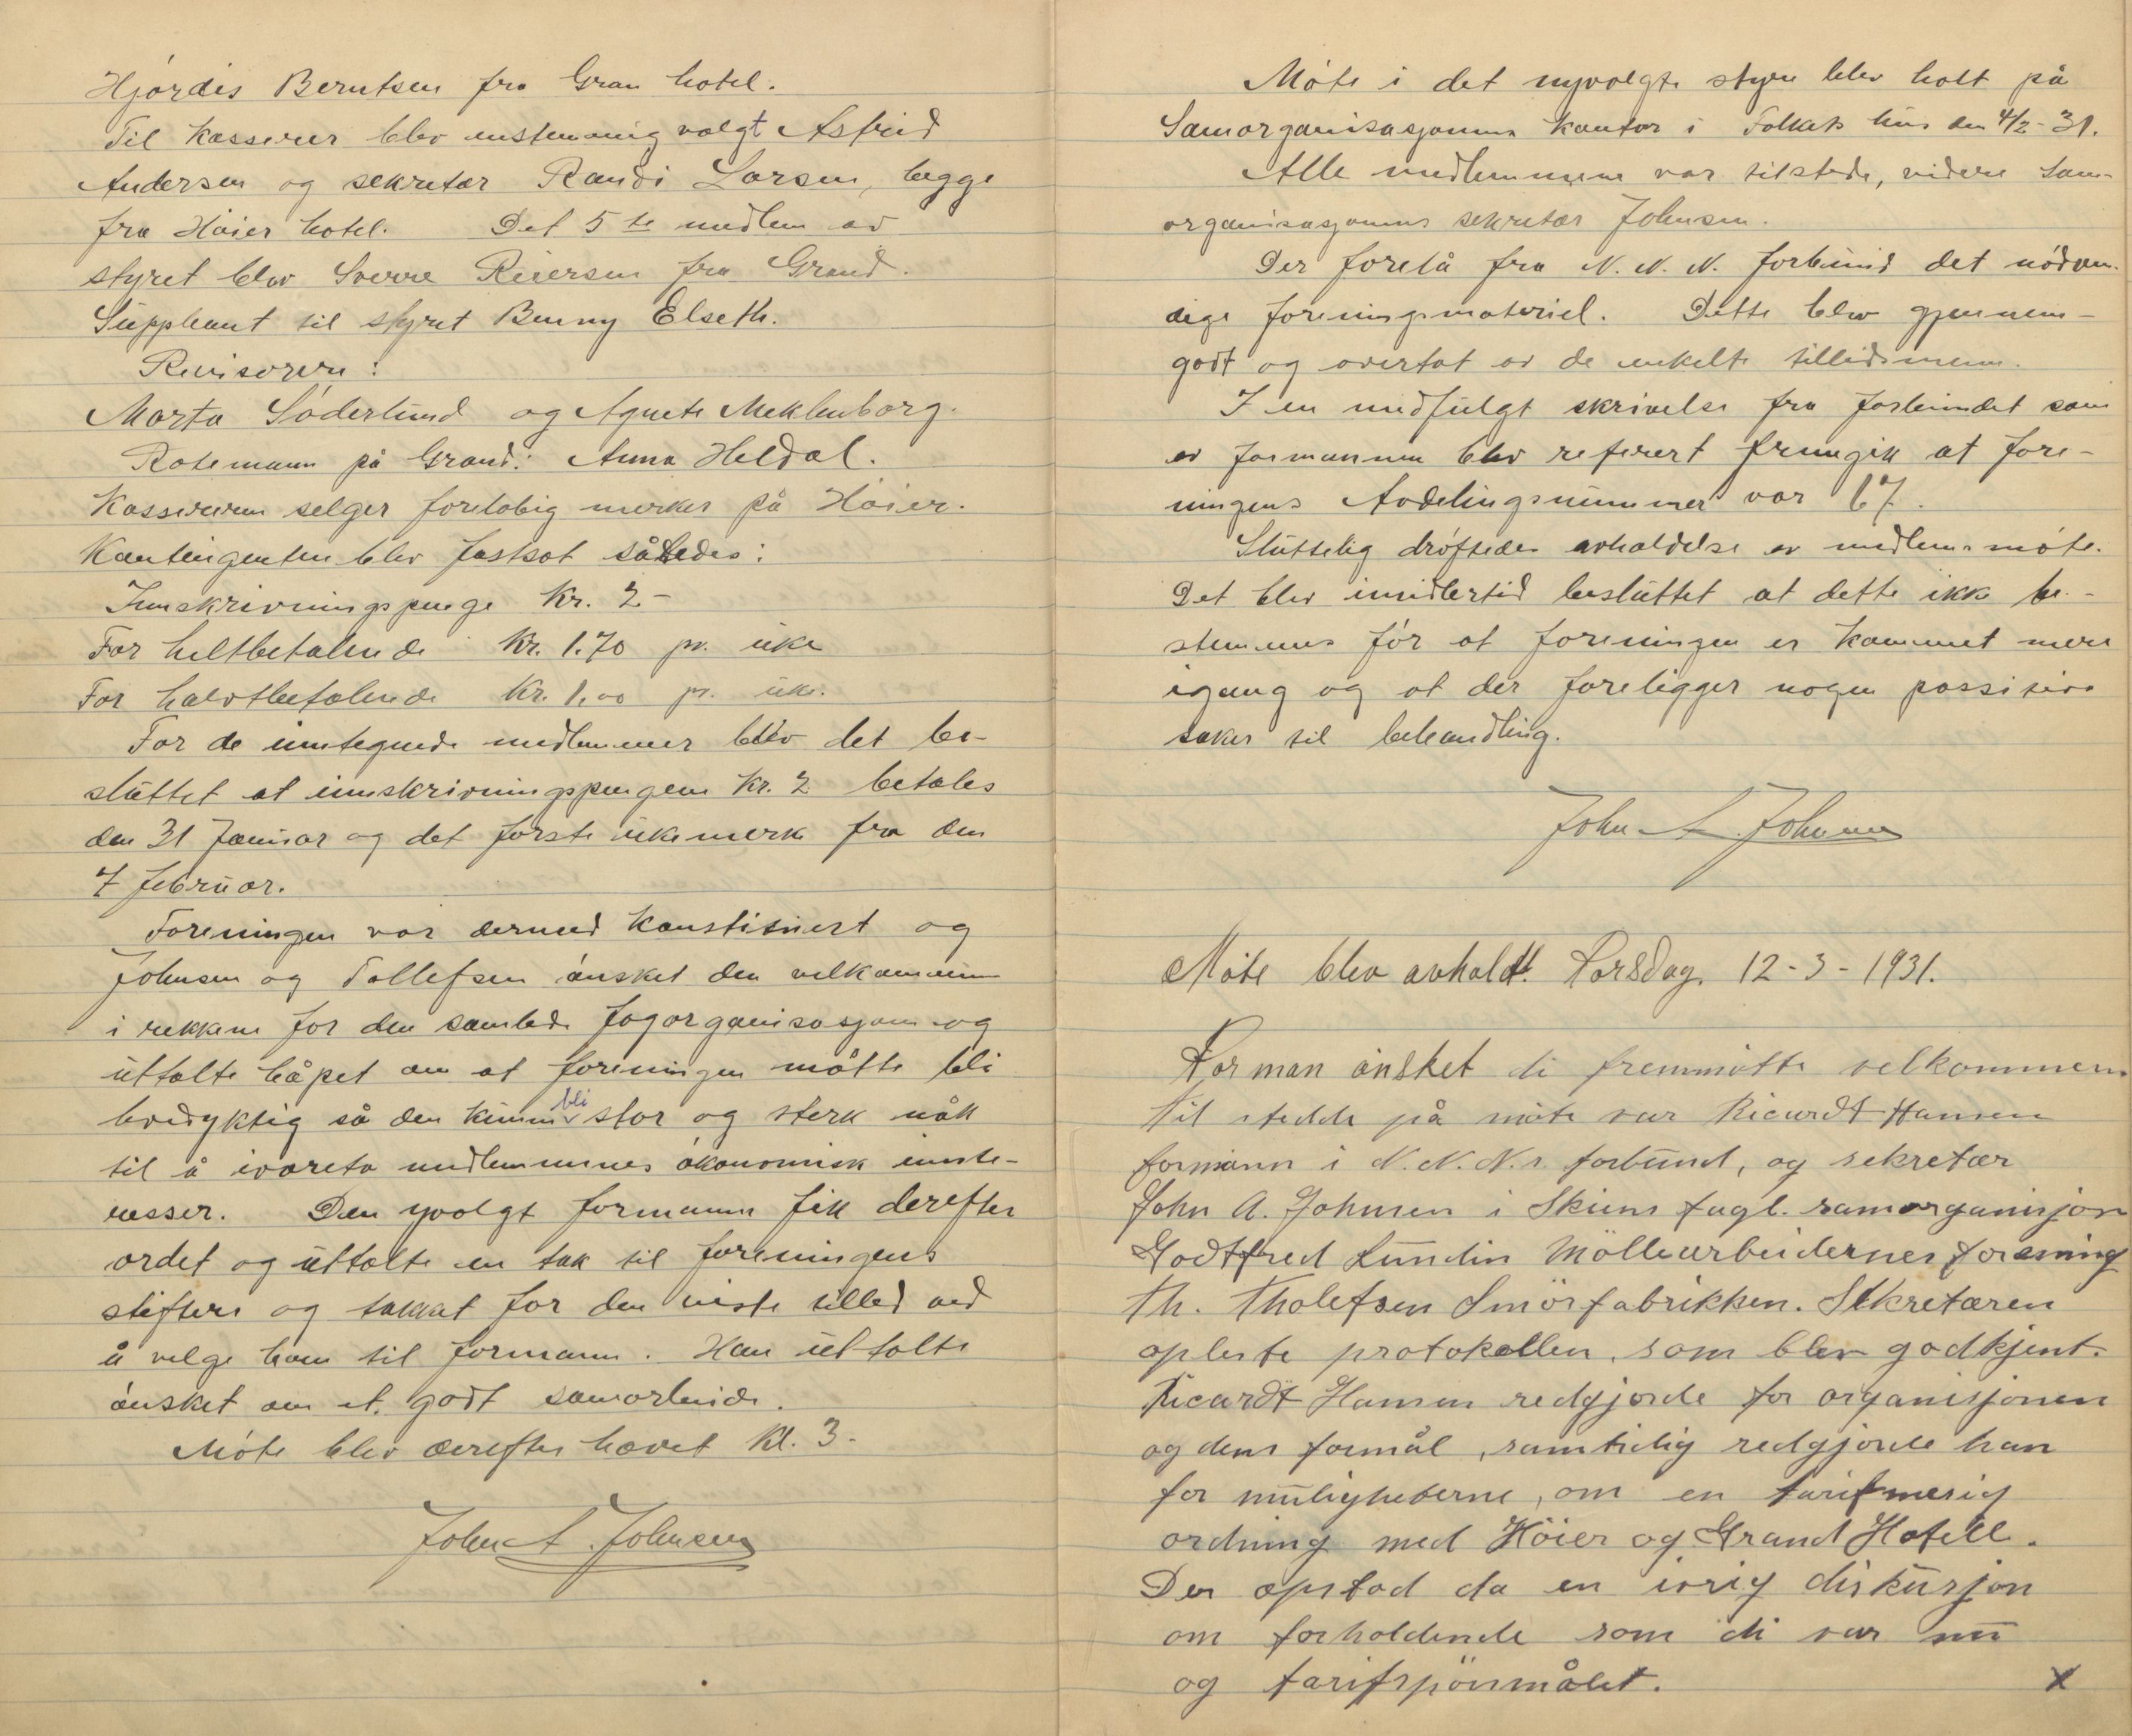 Hjørdis Berntsen fra Gran hotel.
Til kasserer blev enstemmig valgt Astrid
Andersen og sekretær Randi Larsen, begge
fra Høier hotel. Det 5te medlem av
styret blev Sverre Reiersen fra Grand.
Suppleant til styret Benny Elseth.
Revisorere:
Marta Søderlund og Agnete Meklenborg.
Rotemann på Grand: Anna Heldal.
Kassereren selger foreløbig merker på Høier.
Kontingenten blev fastsat således:
Innskrivningspenge Kr. 2-
For heltbetalende Kr. 1.70 pr. uke
For halvtbetalende Kr. 1.00 pr. uke.
For de inntegnede medlemmer blev det be-
sluttet at innskrivningspengene Kr. 2 betales
den 31 Januar og det første ukemerke fra den
7 februar.
Foreningen var dermed konstituert og
Johnsen og Tollefsen ønsket den velkommen
i rekkene for den samlede fagorganisasjon og
uttalte håpet om at foreningen måtte bli
bredyktig så den kunne bli stor og sterk nok
til å ivareta medlemmenes økonomisk inte-
resser. Den yvalgt formann fik derefter
ordet og uttalte en tak til foreningens
stiftere og takkat for den viste tillid ved
å velge ham til formann. Han uttalte
ønsket om et godt samarbeide.
Møte blev derefter hævet Kl. 3-
John A. Johnsen
Møte i det nyvalgte styre blev holt på
Samorganisasjonens kontor i Folkets hus den 4/2-31.
Alle medlemmene var tilstede, videre Sam-
organisasjonens sekretær Johnsen.
Der forelå fra N. N. N. forbund det nødven-
dige foreningsmateriel. Dette blev gjennem-
gått og overtat av de enkelte tillidsmenn.
I en medfulgt skrivelse fra forbundet som
av formannen blev referert fremgik at fore-
ningens Avdelingsnummer var 67.
Sluttelig drøftedes avholdelse av medlemsmøte.
Det blev imidlertid besluttet at dette ikke be-
stemmes før at foreningen er kommet mere
igang og at der foreligger nogen possitive
saker til behandling.
John A. Johnsen
Møte blev avholdt. Torsdag. 12-3-1931.
Forman ønsket di fremmøtte velkommen
Til stedde på møte var Ricardt Hansen
formann i N.N.N.s forbund, og sekretær
John A. Johnsen i Skiens fagl. samorganisjon
Godtfred Lundin Möllearbeidernes forening
Th. Tholefsen Smörfabrikken. Sekretæren
opleste protokollen, som blev godkjent.
Ricardt Hansen redgjorde for organisjonen
og dens formål, samtidig redgjorde han
for muligheterne, om en tarifmesig
ordning med Höier og Grand Hotell.
Der opstod da en ivrig diskusjon
om forholdende som di var nu
og tarifspönmålet. x